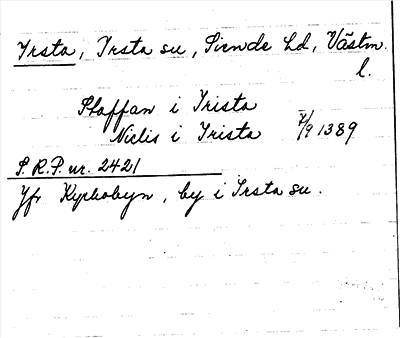 Irsta, Irsta sn, Siende hd, Västm.
l.
Staffan i Irista
Niclis i Irista 7/9 1389
S.R.P. nr. 2421
Jfr Kyrkobyn, by i Irsta sn.